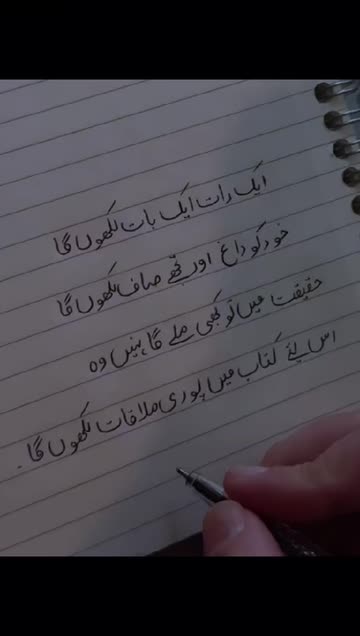 ایک رات ایک بات لکھوں گا
خود کو داغ اور تجھے صاف لکھوں گا
حقیقت میں تو کبھی ملے گا نہیں وہ
اس لئے کتاب میں پوری ملاقات لکھوں گا۔